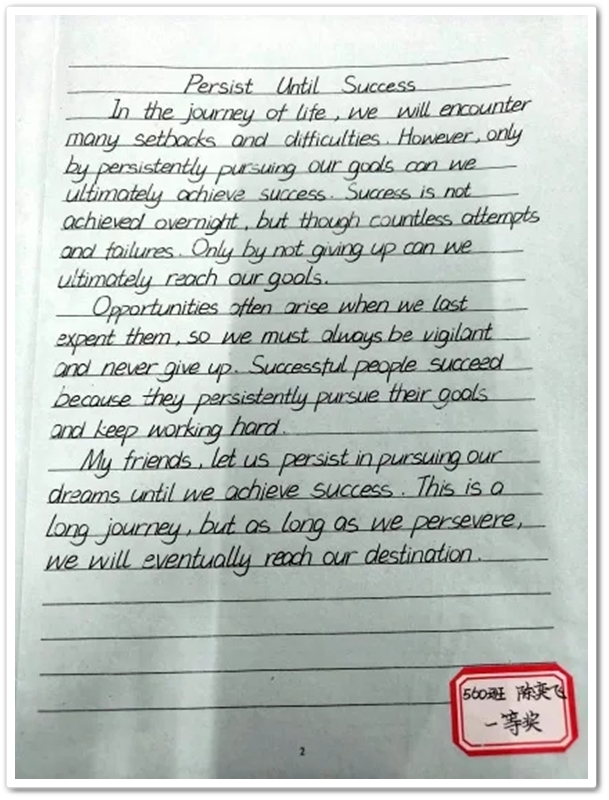 Persist Until Success
In the journey of life, we will encounter
many setbacks and difficulties. However, only
by persistently pursuing our goals can we
ultimately achieve success. Success is not
achieved overnight, but though countless attempts
and failures. Only by not giving up can we
ultimately reach our goals.
Opportunities often arise when we last
expent them, so we must always be vigilant
and never give up. Successful people succeed
because they persistently pursue their goals
and keep working hard.
My friends, let us persist in pursuing our
dreams until we achieve success. This is a
long journey, but as long as we persevere,
we will eventually reach our destination.
560班 陈奕飞
一等奖
2